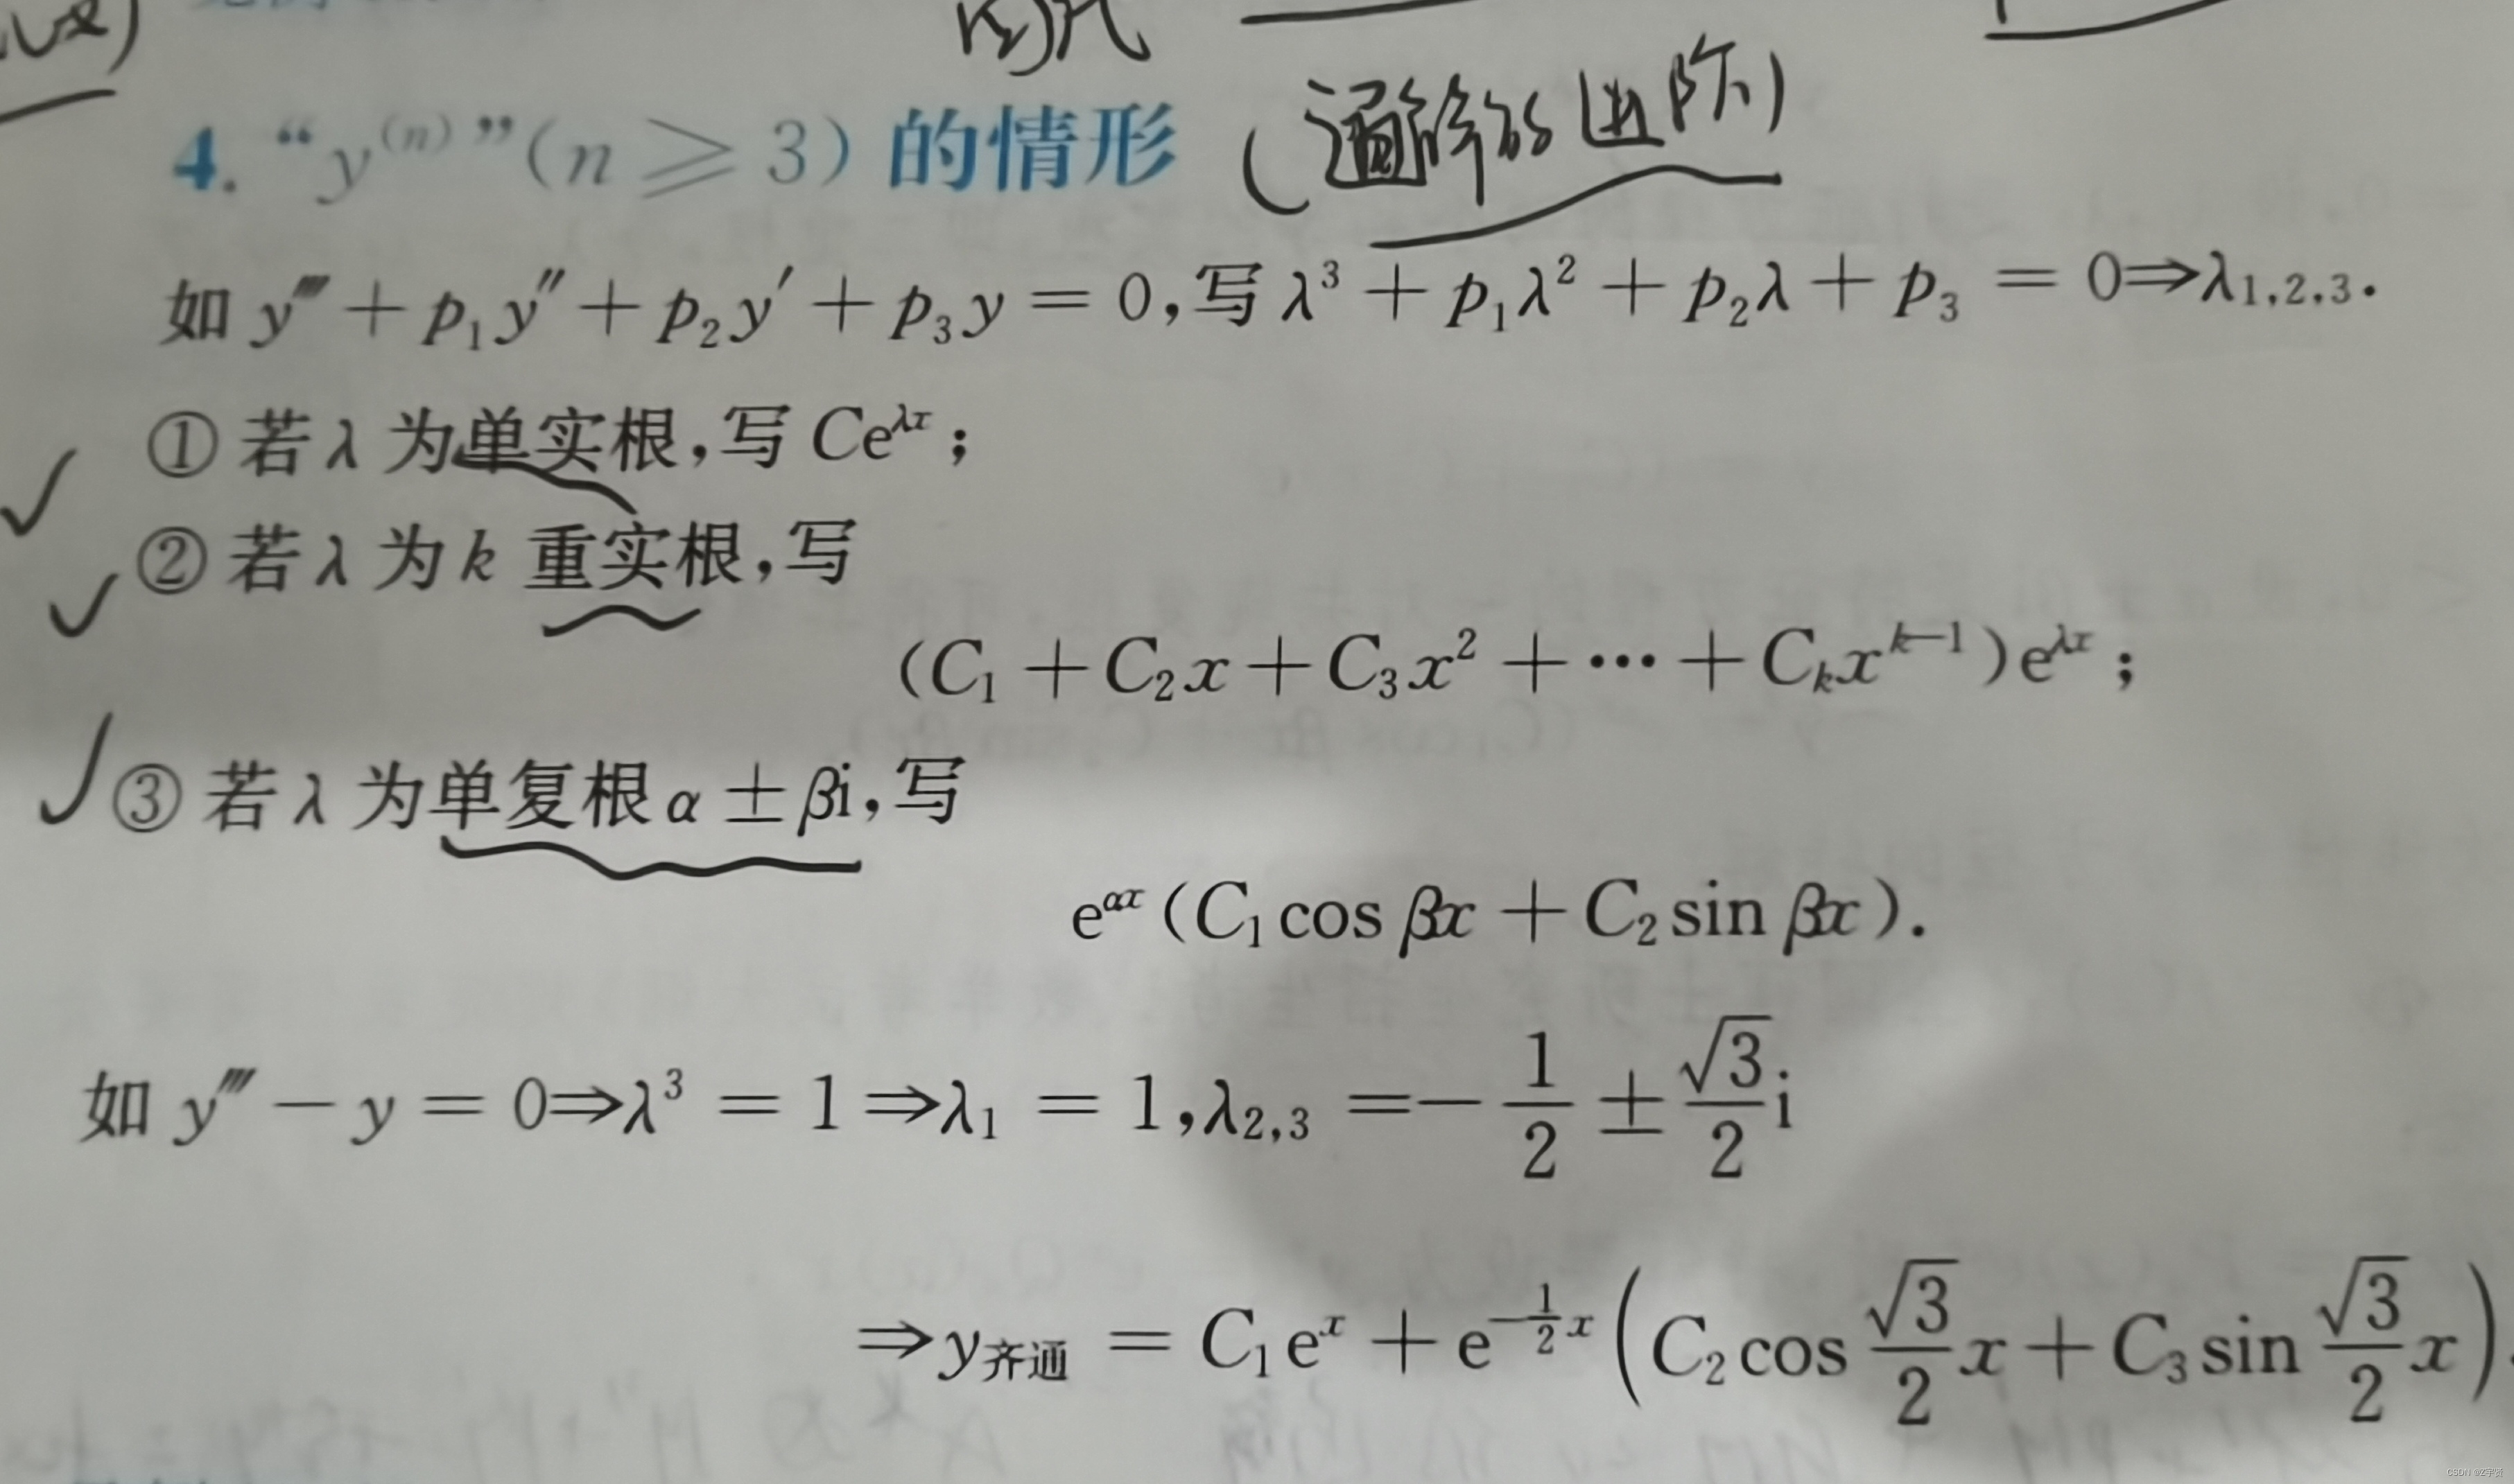 4. “y⁽ⁿ⁾”(n ⩾ 3) 的情形 (通解的进阶)
如 y‴ + p₁y″ + p₂y′ + p₃y = 0,写 λ³ + p₁λ² + p₂λ + p₃ = 0⇒λ₁,₂,₃.
① 若 λ 为单实根,写 Ce^{λx};
② 若 λ 为 k 重实根,写
(C₁ + C₂x + C₃x² + ⋯ + C_k x^{k−1})e^{λx};
③ 若 λ 为单复根 α ± βi,写
e^{αx}(C₁cos βx + C₂sin βx).
如 y‴ − y = 0⇒λ³ = 1⇒λ₁ = 1,λ₂,₃ = −\frac{1}{2} ± \frac{√3}{2}i
⇒y齐通 = C₁e^{x} + e^{−\frac{1}{2}x}(C₂cos \frac{√3}{2}x + C₃sin \frac{√3}{2}x).